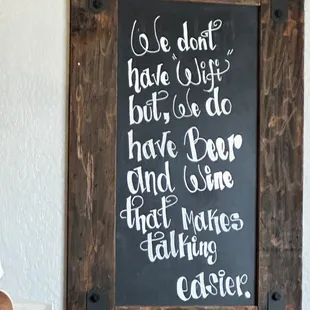 We don't
have "Wifi"
but, We do
have Beer
and Wine
that Makes
talking
easier.